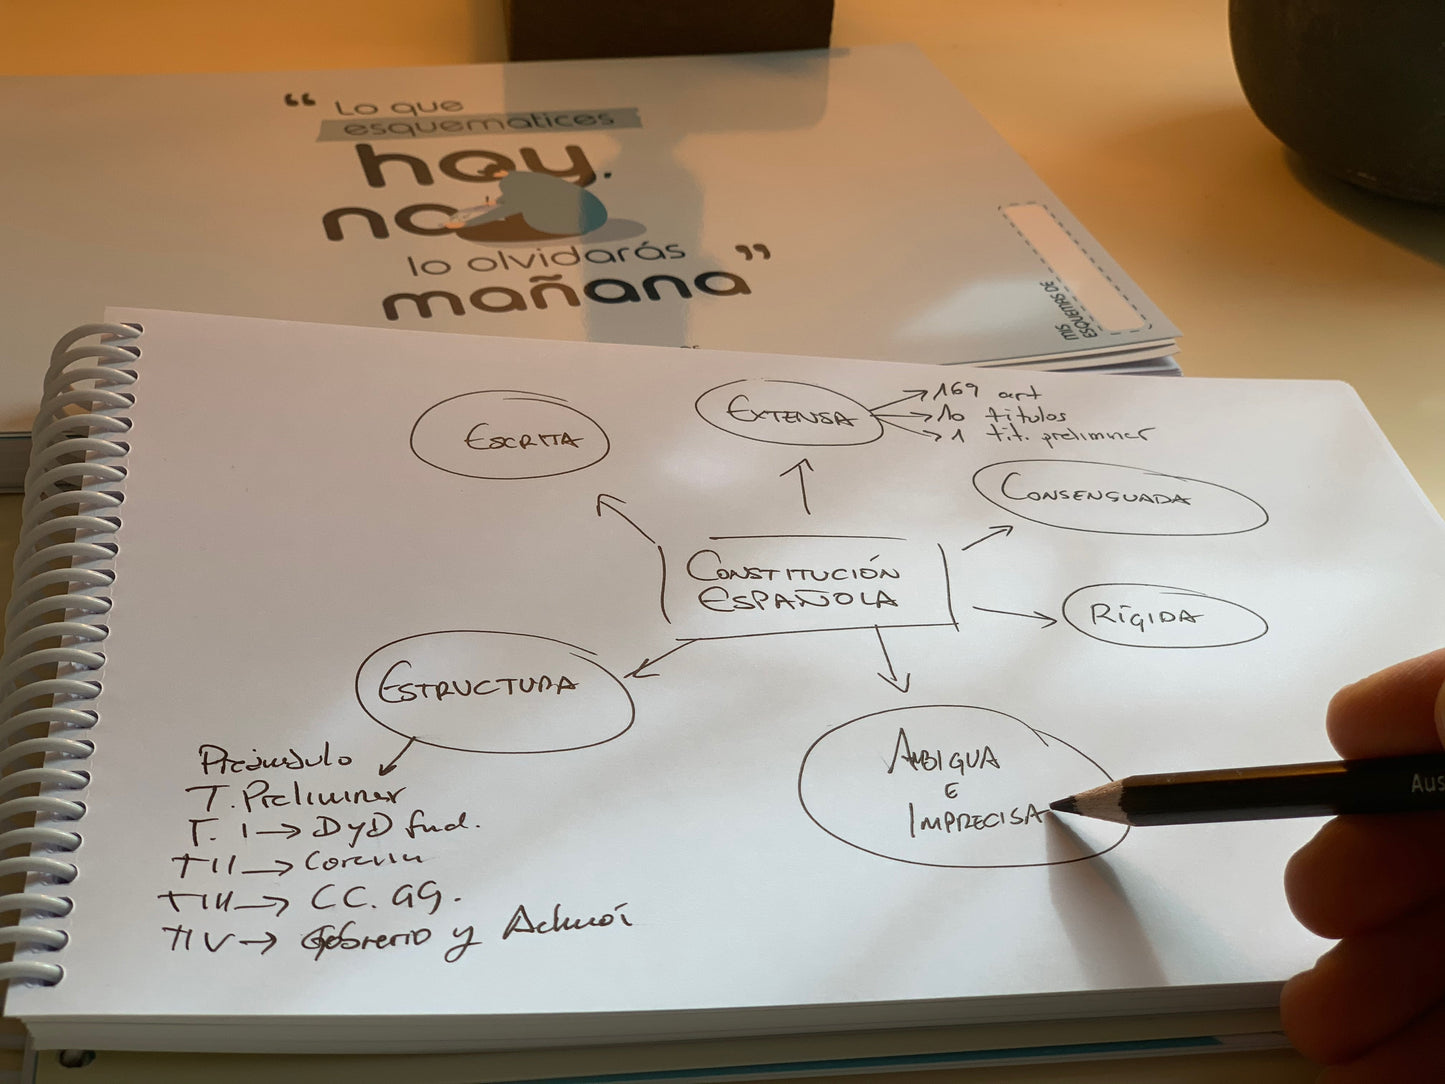 “ Lo que
esquematices
hoy.
no
lo olvidarás
mañana ”
MIS
ESQUEMAS DE
ESCRITA
EXTENSA
→ 169 art
→ 10 titulos
→ 1 tit. preliminar
CONSENSUADA
CONSTITUCIÓN
ESPAÑOLA
RÍGIDA
ESTRUCTURA
AMBIGUA
E
IMPRECISA
Preámbulo
T. Preliminar
T. I → D y D fund.
TII → Corona
TIII → CC. GG.
TIV → Gobierno y
Aus